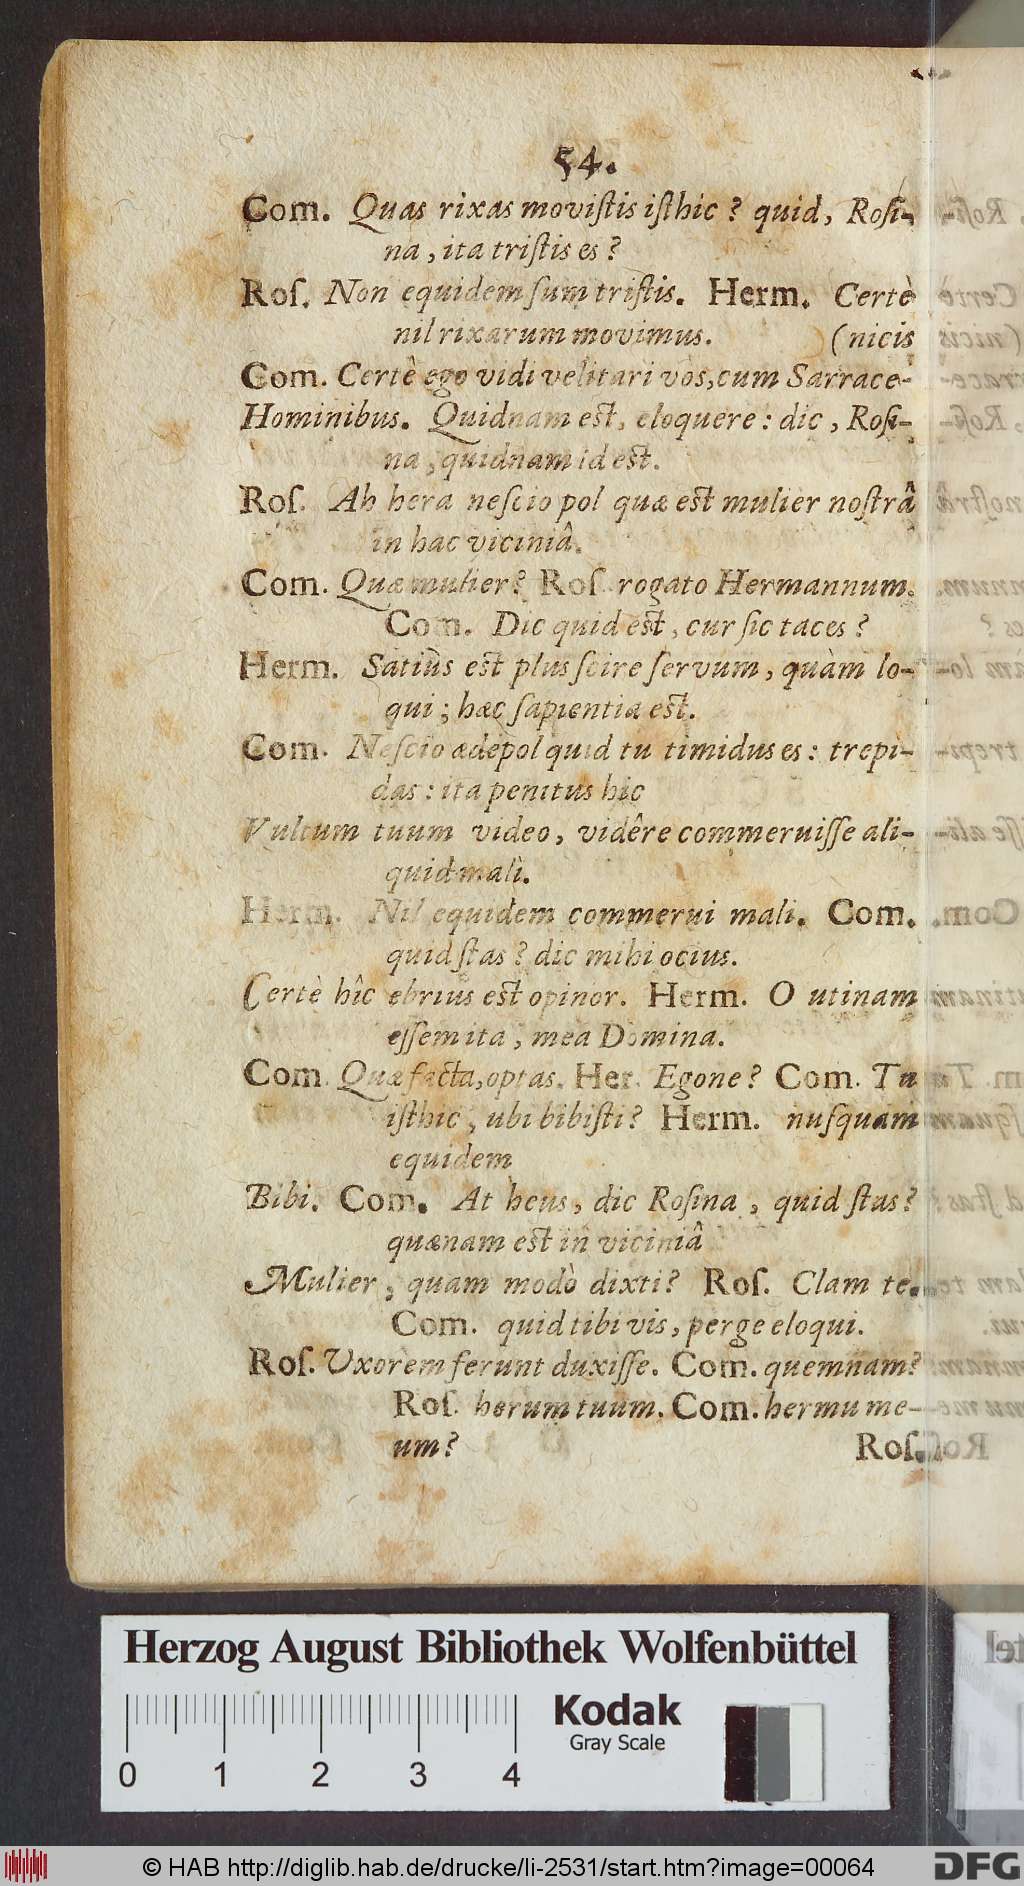 54.
Com. Quas rixas moviſtis iſthic? quid, Roſi-
na, ita triſtis es?
Roſ. Non equidem ſum triſtis. Herm. Certè
nil rixarum movimus. (nicis
Com. Certè ego vidi velitari vos, cum Sarrace-
Hominibus. Quidnam est, eloquere: dic, Roſi-
na, quidnam id est.
Roſ. Ah hera neſcio pol quæ est mulier noſtrâ
in hac viciniâ.
Com. Quæ mulier? Roſ. rogato Hermannum.
Com. Dic quid est, cur ſic taces?
Herm. Satiùs est plus ſcire ſervum, quàm lo-
qui; hæc ſapientia est.
Com. Neſcio ædepol quid tu timidus es: trepi-
das: ita penitus hic
Vultum tuum video, vidêre commeruiſſe ali-
quid mali.
Herm. Nil equidem commerui mali. Com.
quid ſtas? dic mihi ocius.
Certè hîc ebrius est opinor. Herm. O utinam
eſſem ita, mea Domina.
Com. Quæ facta, optas. Her. Egone? Com. Tu
iſthic, ubi bibiſti? Herm. nuſquam
equidem
Bibi. Com. At heus, dic Roſina, quid ſtas?
quænam est in viciniâ
Mulier, quam modò dixti? Roſ. Clam te.
Com. quid tibi vis, perge eloqui.
Roſ. Uxorem ferunt duxiſſe. Com. quemnam?
Roſ. herum tuum. Com. hermu me-
um?
Roſ.
Herzog August Bibliothek Wolfenbüttel
Kodak
Gray Scale
0 1 2 3 4
© HAB http://diglib.hab.de/drucke/li-2531/start.htm?image=00064
DFG